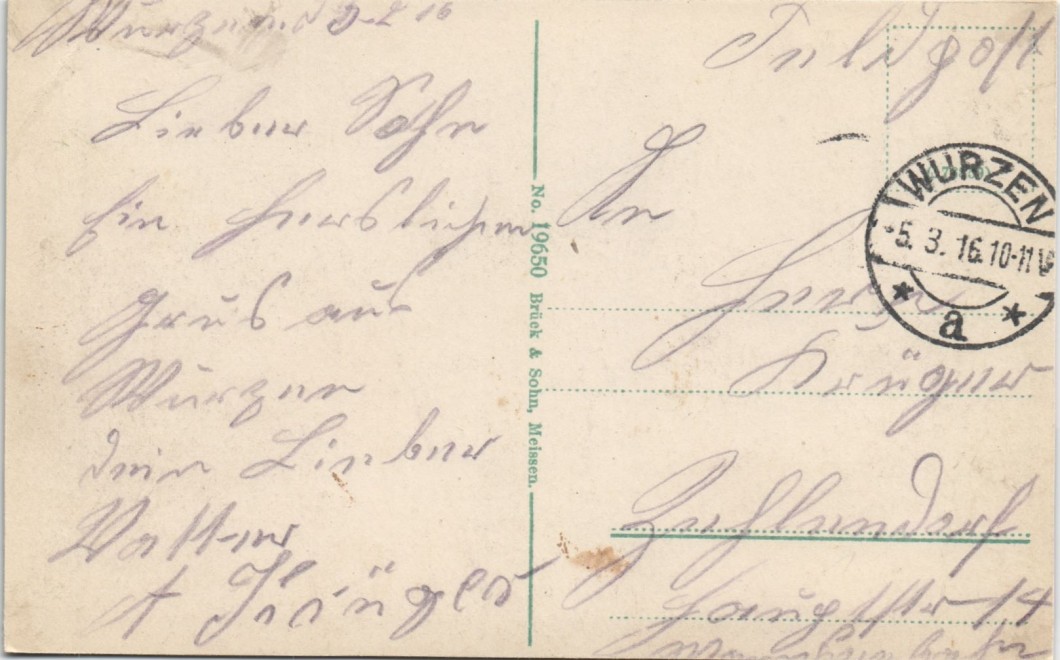 Wurzen d 5-3 16
Lieber Sohn
Ein herzlichen
Grus aus
Wurzen
dein Lieber
Vatter
Krüger
No. 19650 Brück & Sohn, Meissen.
Feldpost
An
Krüger
Zehlendorf
Hauptstr 14
WURZEN
-5.3.16.10-11V
* a *